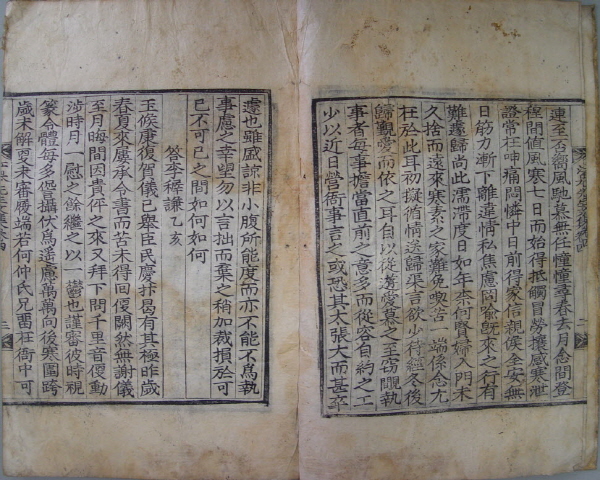 連至否嚮風馳慕無任憧憧嵗春去月念間登
程間値風寒七日而始得抵觸冒勞攘感寒泄
證常在呻痛悶憐中日前得家信親候全安無
日筋力漸下離違情私焦慮悶
難遽歸尚此濡滯度日如年柰何賢婦入門未
久捨而遠來寒素之家難免喫苦一端係念尤
枉於此耳初擬循情送歸渠言欲少待經冬後
歸覲爲而依之耳自以從遊愛慕之至窃覸執
事者每事擔當直前之意多而從容自約之工
少以近日營衙事言之或恐其太張大而甚卒
遽也雖感諒非小腹所能度而亦不能不爲執
事慮之幸望勿以言拙而棄之稍加裁損於可
已不可已之間如何如何
答李穉謙乙亥
玉候康復賀儀已舉臣民慶抃曷有其極昨歲
春夏來屢承令書而苦未得回便闕然無謝儀
至月晦間因貴伻之來又拜下問千里音便動
涉時月一慰之餘繼之以一鬱也謹審彼時視
篆令體每多愆攝伏爲遙慮萬萬向後寒圍跨
歲未解更未審履端若何仲氏兄留在衙中可